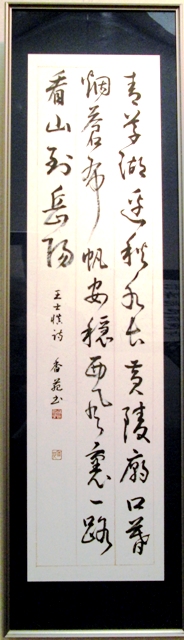 青草湖邊秋水長黃陵廟口暮
烟蒼布帆安穩西風裏一路
看山到岳陽
王士慎詩 香苑书